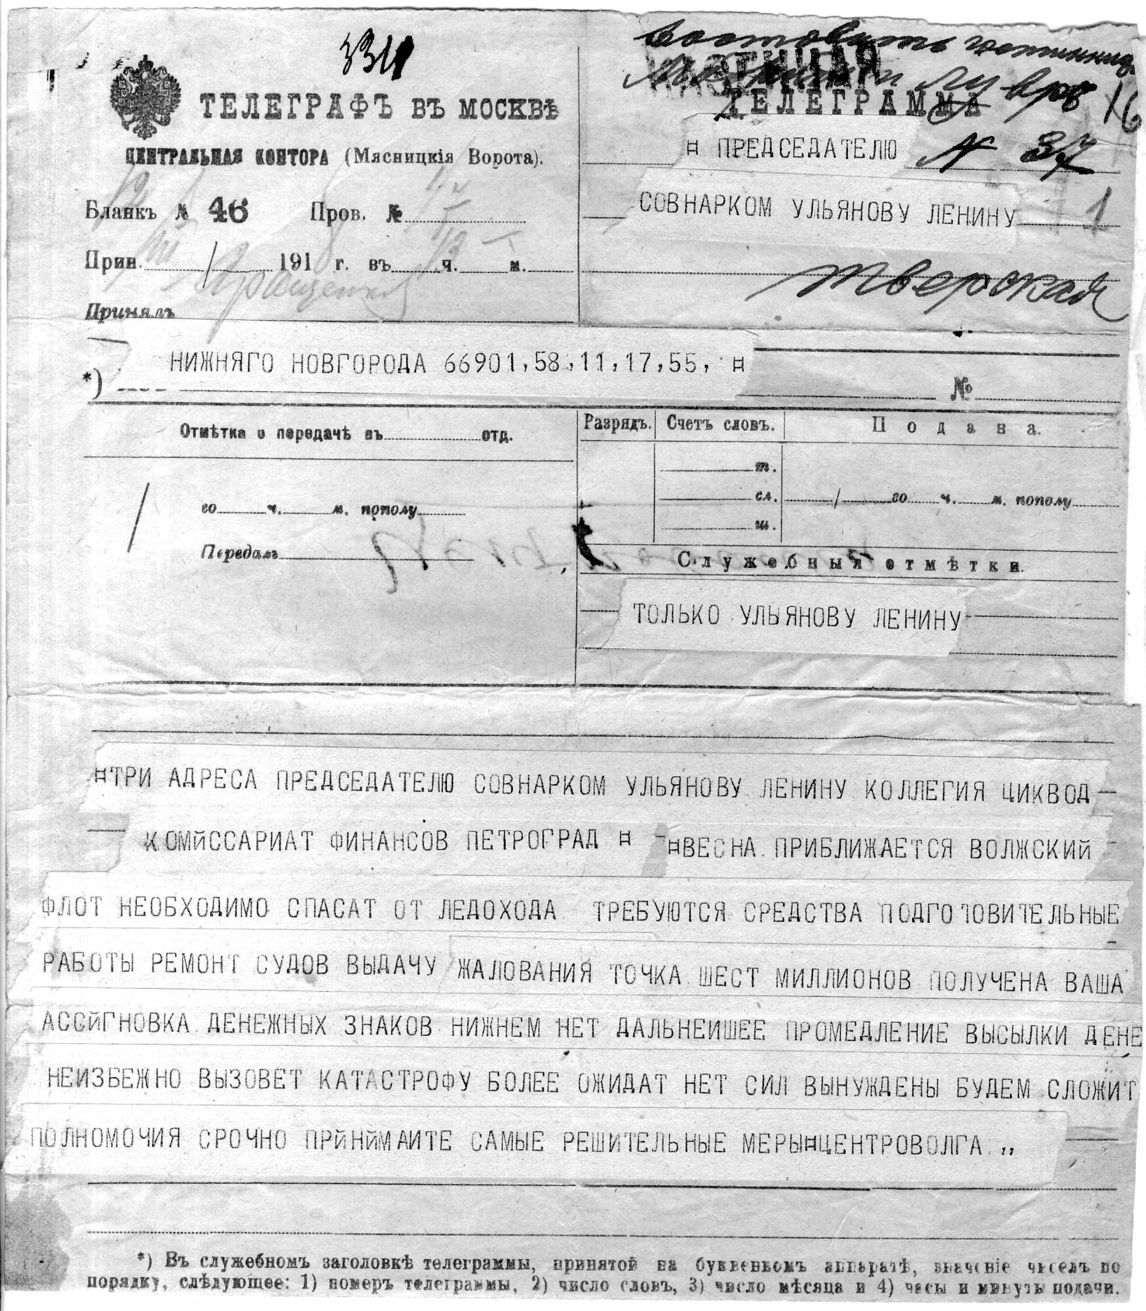 334
КАЗЕННАЯ
ТЕЛЕГРАФЪ ВЪ МОСКВѢ
ТЕЛЕГРАММА
16
ЦЕНТРАЛЬНАЯ КОНТОРА (Мясницкія Ворота).
¤ ПРЕДСЕДАТЕЛЮ
N 37
Бланкъ № 46 Пров. №
СОВНАРКОМ УЛЬЯНОВУ ЛЕНИНУ
1
Прин. / 1918 г. въ ч. м.
Тверская
Принялъ
*) НИЖНЯГО НОВГОРОДА 66901,58,11,17,55, ¤
№
Отмѣтка о передачѣ въ отд.
Разрядъ. Счетъ словъ. Подана.
т.
го ч. м. пополу
сл. / го ч. м. пополу
ш.
Передалъ
Служебныя отмѣтки.
ТОЛЬКО УЛЬЯНОВУ ЛЕНИНУ
¤ТРИ АДРЕСА ПРЕДСЕДАТЕЛЮ СОВНАРКОМ УЛЬЯНОВУ ЛЕНИНУ КОЛЛЕГИЯ ЦИКВОД
КОМЙССАРИАТ ФИНАНСОВ ПЕТРОГРАД ¤ ¤ВЕСНА ПРИБЛИЖАЕТСЯ ВОЛЖСКИЙ
ФЛОТ НЕОБХОДИМО СПАСАТ ОТ ЛЕДОХОДА ТРЕБУЮТСЯ СРЕДСТВА ПОДГОТОВИТЕЛЬНЫЕ
РАБОТЫ РЕМОНТ СУДОВ ВЫДАЧУ ЖАЛОВАНИЯ ТОЧКА ШЕСТ МИЛЛИОНОВ ПОЛУЧЕНА ВАША
АССЙГНОВКА ДЕНЕЖНЫХ ЗНАКОВ НИЖНЕМ НЕТ ДАЛЬНЕИШЕЕ ПРОМЕДЛЕНИЕ ВЫСЫЛКИ ДЕНЕ
НЕИЗБЕЖНО ВЫЗОВЕТ КАТАСТРОФУ БОЛЕЕ ОЖИДАТ НЕТ СИЛ ВЫНУЖДЕНЫ БУДЕМ СЛОЖИТ
ПОЛНОМОЧИЯ СРОЧНО ПРЙНЙМАИТЕ САМЫЕ РЕШИТЕЛЬНЫЕ МЕРЫ¤ЦЕНТРОВОЛГА „
*) Въ служебномъ заголовкѣ телеграммы, принятой на буквенномъ аппаратѣ, значеніе чиселъ по
порядку, слѣдующее: 1) номеръ телеграммы, 2) число словъ, 3) число мѣсяца и 4) часы и минуты подачи.